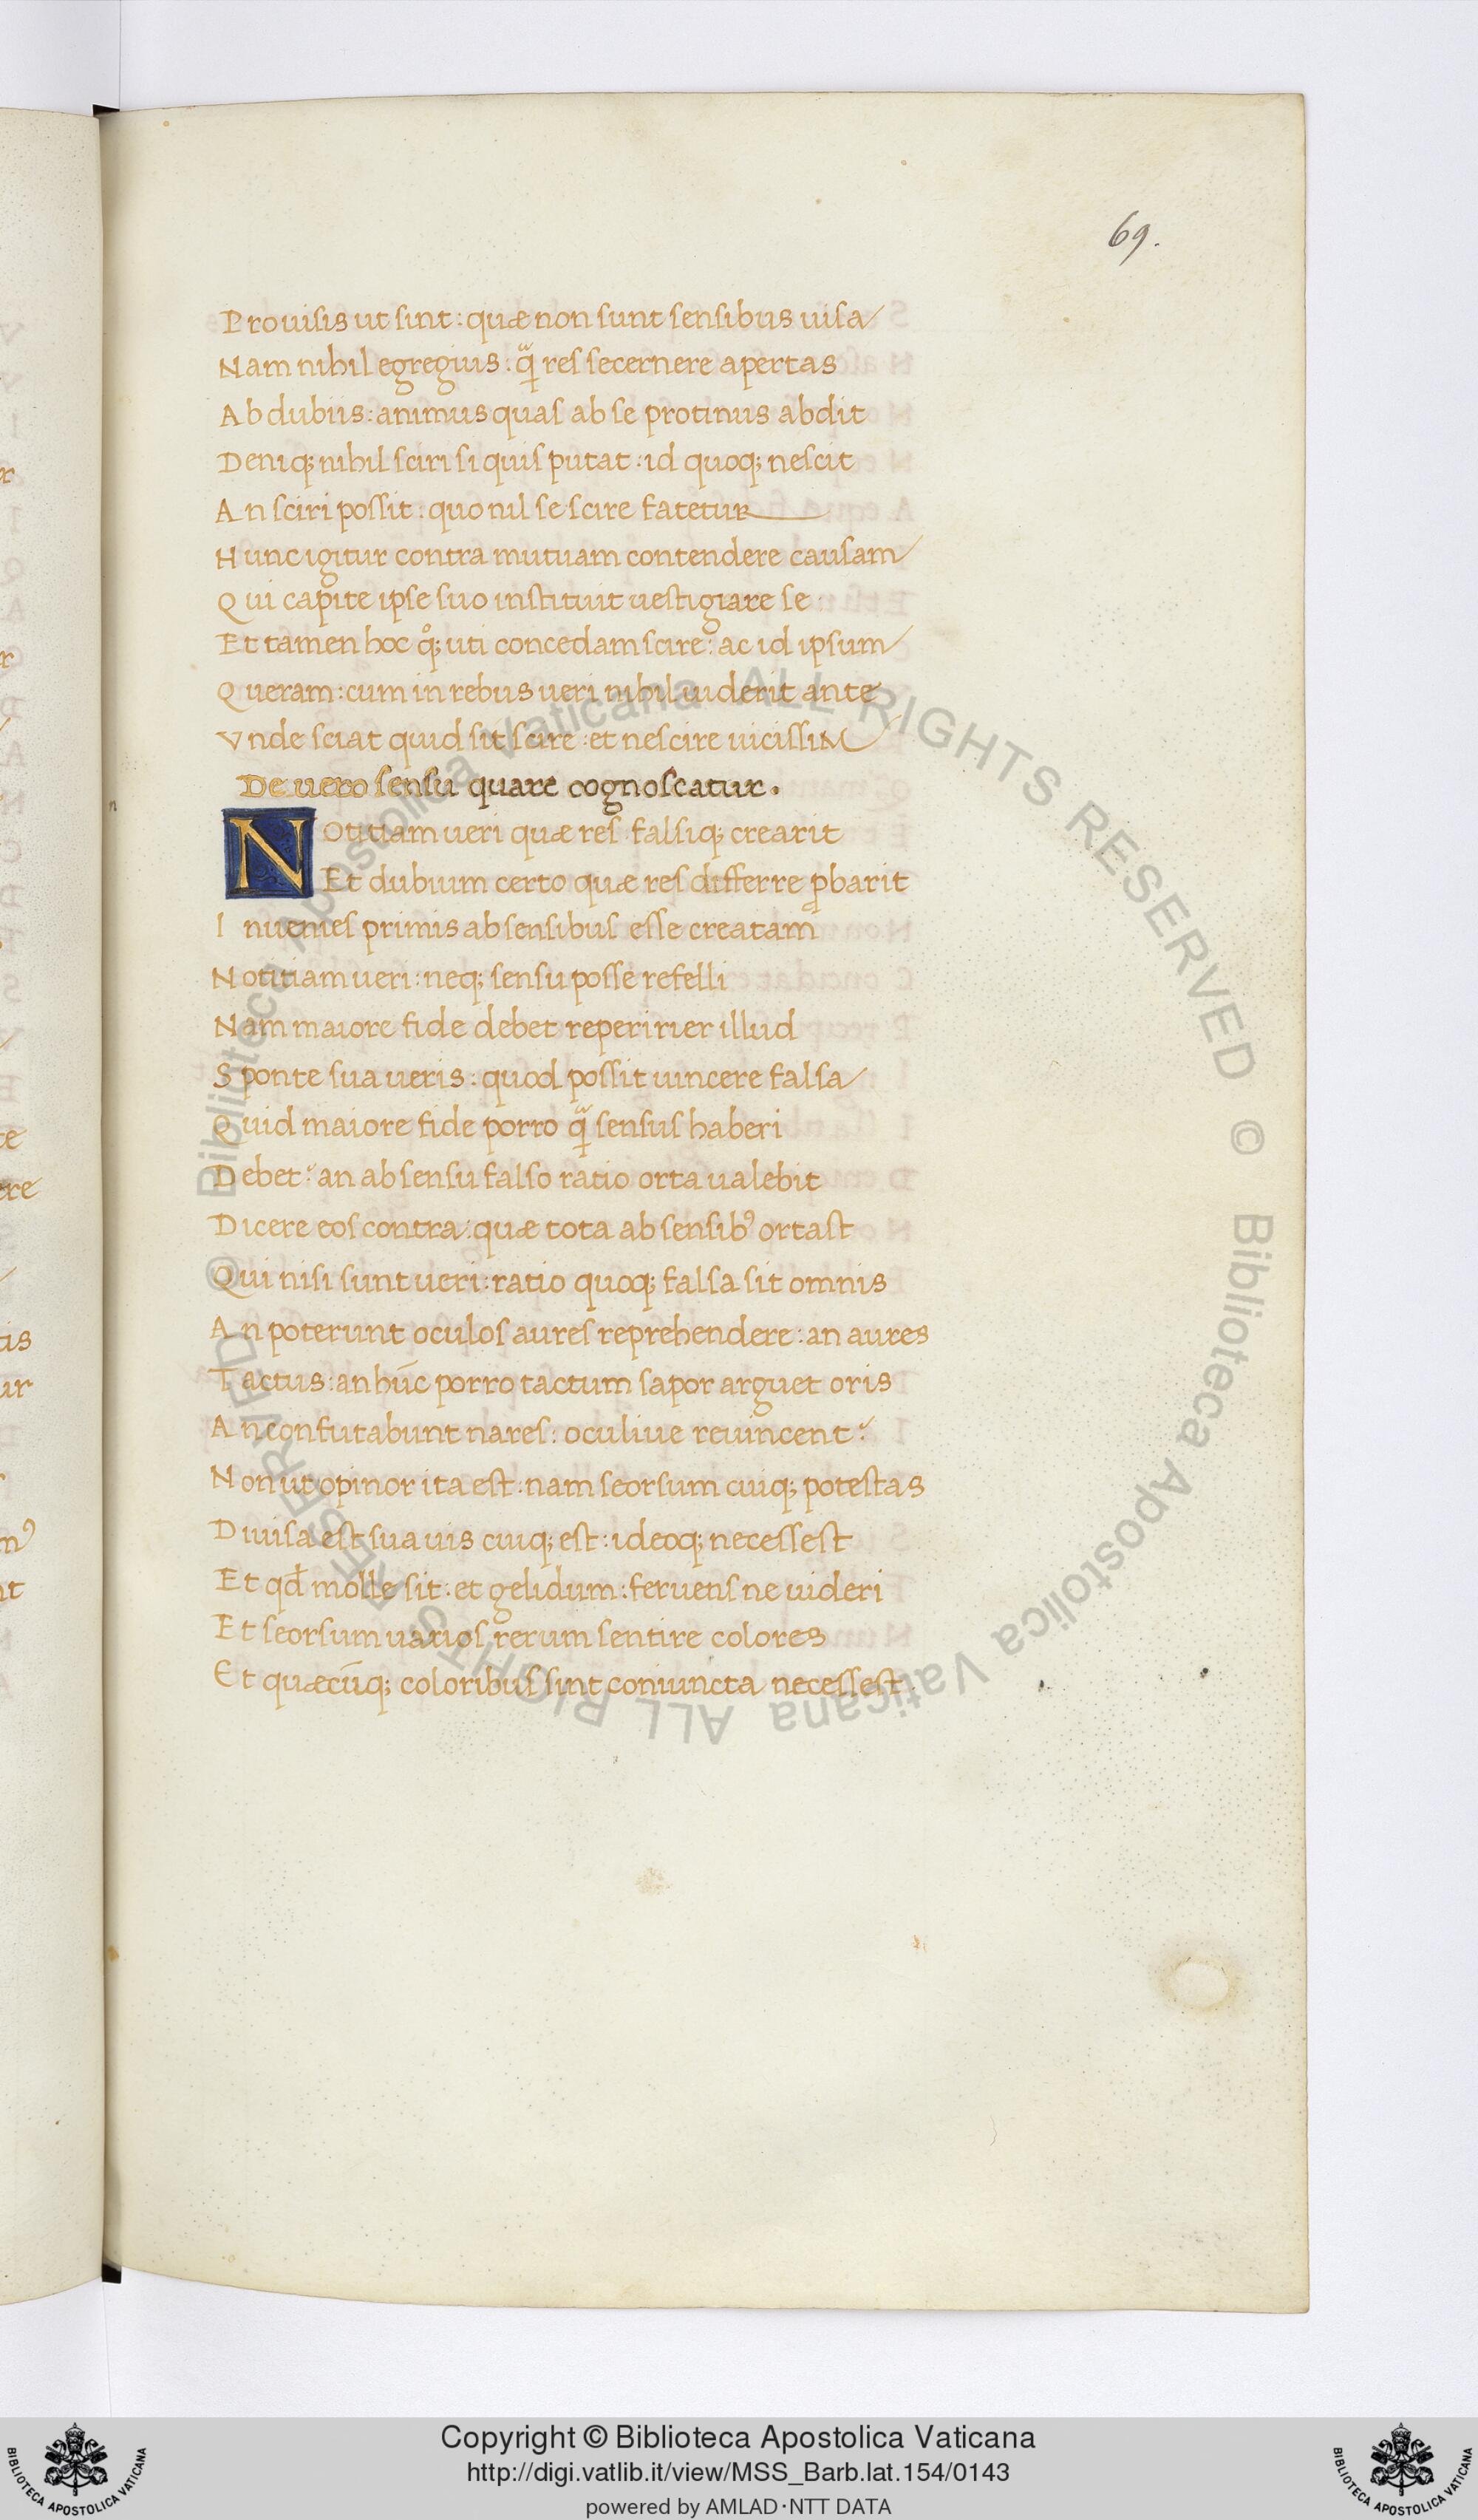 69.
Prouisis ut sint : quæ non sunt sensibus uisa
Nam nihil egregius : q̃ res secernere apertas
Ab dubiis : animus quas ab se protinus abdit
Deniq; nihil sciri si quis putat : id quoq; nescit
An sciri possit : quo nil se scire fatetur
Hunc igitur contra mutuam contendere causam
Qui capite ipse suo instituit uestigiare se
Et tamen hoc q°; uti concedam scire : ac id ipsum
Queram : cum in rebus ueri nihil uiderit ante
Vnde sciat quid sit scire : et nescire uicissiM
De uero sensu quare cognoscatur.
NOtitiam ueri quæ res falsiq; crearit
Et dubium certo quæ res differre ꝓbarit
Inuenies primis ab sensibus esse creatam
Notitiam ueri : neq; sensu posse refelli
Nam maiore fide debet reperirier illud
Sponte sua ueris : quod possit uincere falsa
Quid maiore fide porro q̃ sensus haberi
Debet? an ab sensu falso ratio orta ualebit
Dicere eos contra : quæ tota ab sensibꝰ ortast
Qui nisi sunt ueri : ratio quoq; falsa sit omnis
An poterunt oculos aures reprehendere : an aures
Tactus : an hūc porro tactum sapor arguet oris
An confutabunt nares : oculiue reuincent?
Non ut opinor ita est : nam seorsum cuiq; potestas
Diuisa est sua uis cuiq; est : ideoq; necessest
Et qđ molle sit : et gelidum : feruens ne uideri
Et seorsum uarios rerum sentire colores
Et quæcūq; coloribus sint coniuncta necessest.
© Biblioteca Apostolica Vaticana ALL RIGHTS RESERVED
© Biblioteca Apostolica Vaticana ALL RIGHTS RESERVED
Copyright © Biblioteca Apostolica Vaticana
http://digi.vatlib.it/view/MSS_Barb.lat.154/0143
powered by AMLAD·NTT DATA
BIBLIOTECA APOSTOLICA VATICANA
BIBLIOTECA APOSTOLICA VATICANA